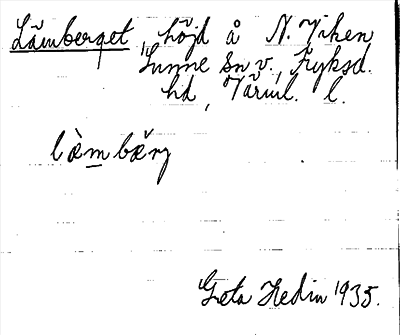 Lämberget, höjd å N. Viken
Sunne sn v., Fryksd.
hd, Värml. l.
læ̀m bærj
Greta Hedin 1935.